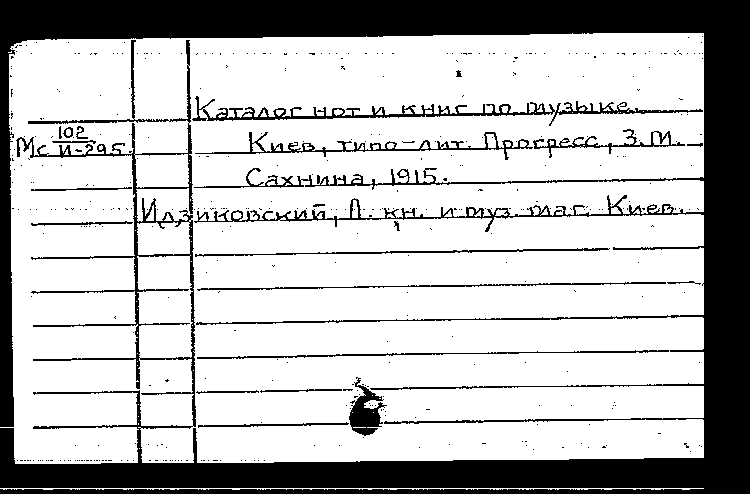 Каталог нот и книг по музыке.
102
Мс И-295
Киев, типо-лит. Прогресс, З. М.
Сахнина, 1915.
Идзиковский, Л. кн. и муз. маг. Киев.